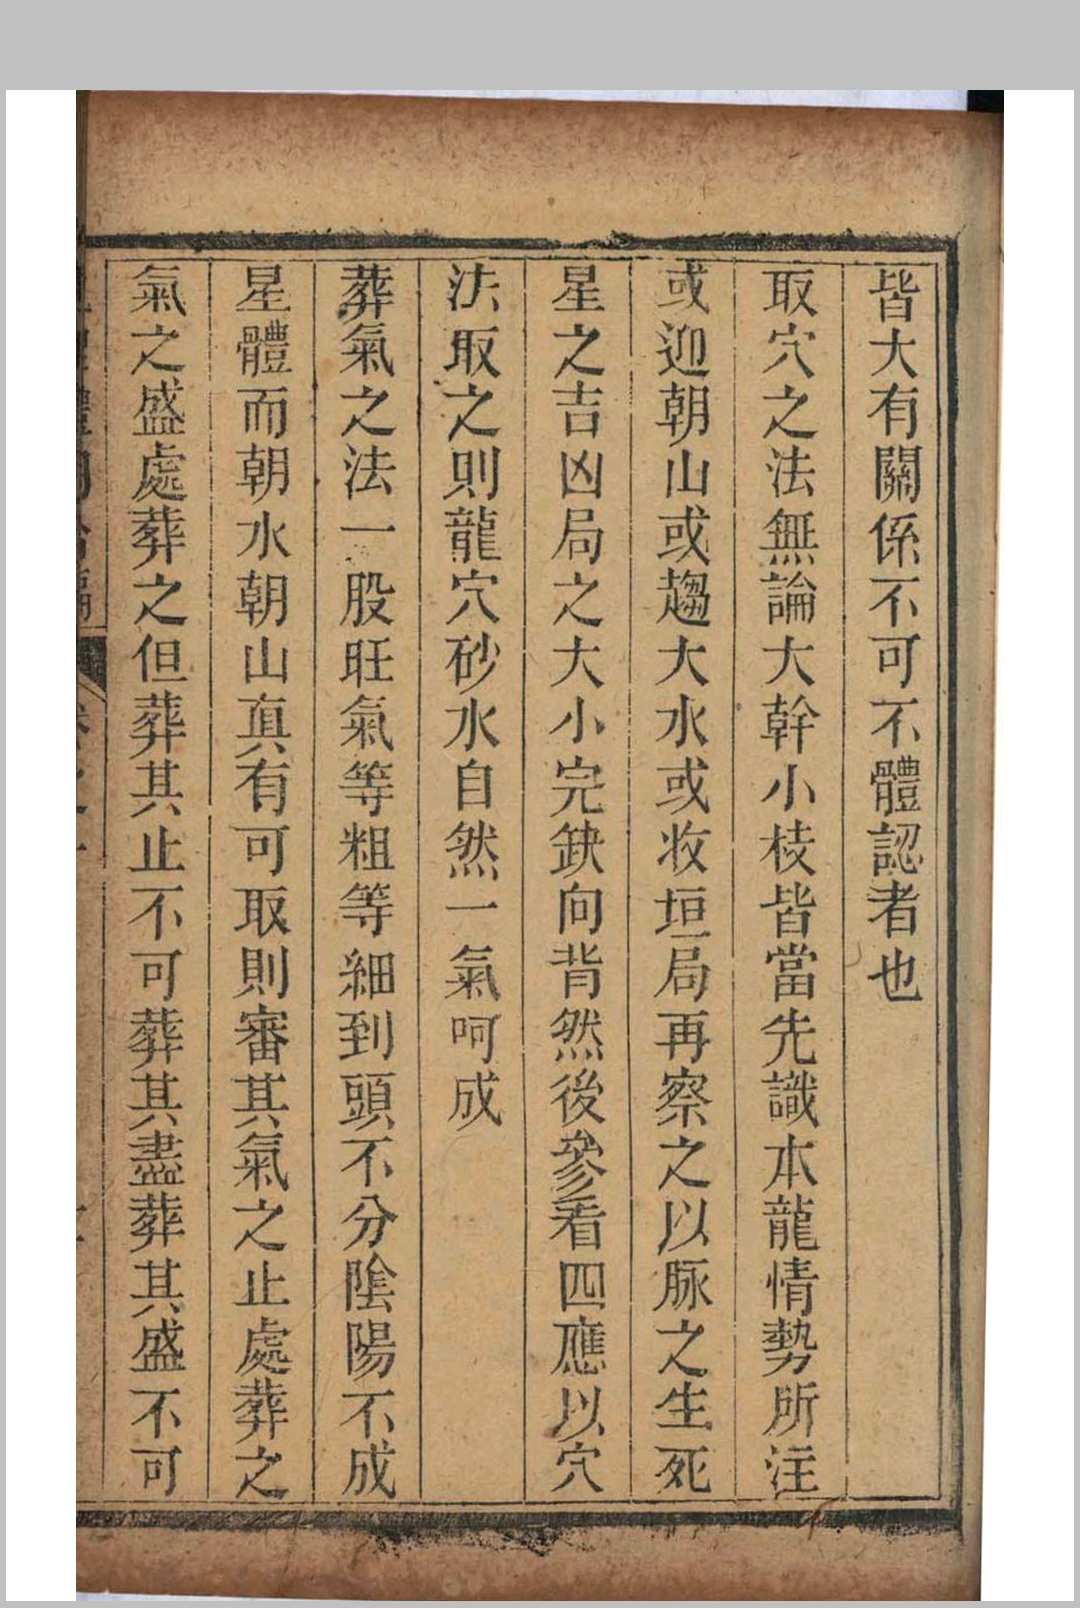 皆大有關係不可不體認者也
取穴之法無論大幹小枝皆當先識本龍情勢所注
或迎朝山或趨大水或收垣局再察之以脉之生死
星之吉凶局之大小完缺向背然後參看四應以穴
法取之則龍穴砂水自然一氣呵成
葬氣之法一股旺氣等粗等細到頭不分陰陽不成
星體而朝水朝山眞有可取則審其氣之止處葬之
氣之盛處葬之但葬其止不可葬其盡葬其盛不可